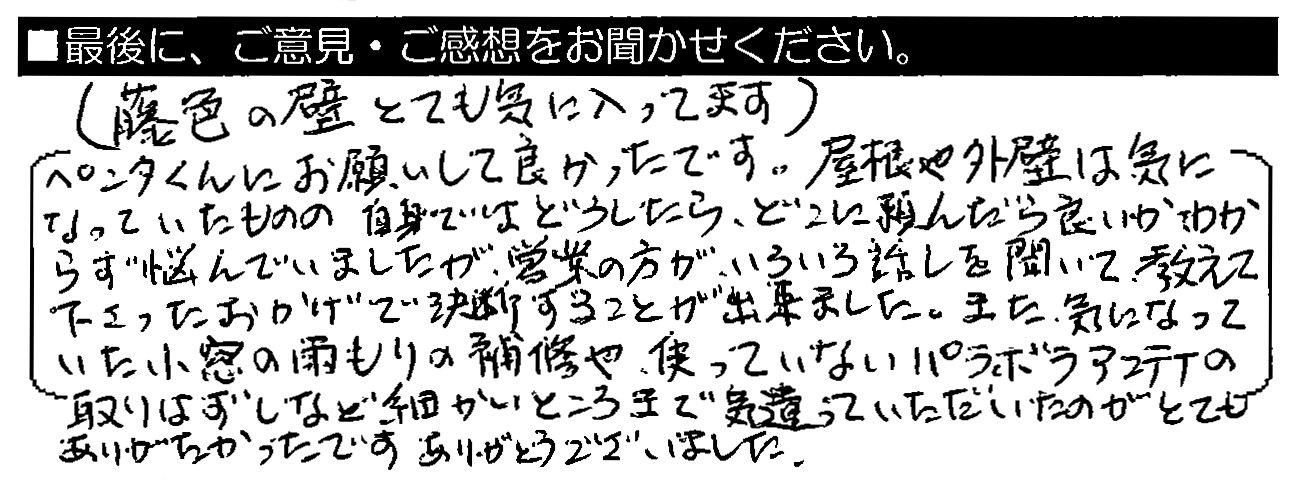 ■最後に、ご意見・ご感想をお聞かせください。
(藤色の壁とても気に入ってます)
ペンタくんにお願いして良かったです。屋根や外壁は気に
なっていたものの 自身ではどうしたら、どこに頼んだら良いかわか
らず悩んでいましたが、営業の方が、いろいろ話しを聞いて、教えて
下さったおかげで決断することが出来ました。また、気になって
いた小窓の雨もりの補修や、使っていないパラボラアンテナの
取りはずしなど細かいところまで気遣っていただいたのがとても
ありがたかったです ありがとうございました.